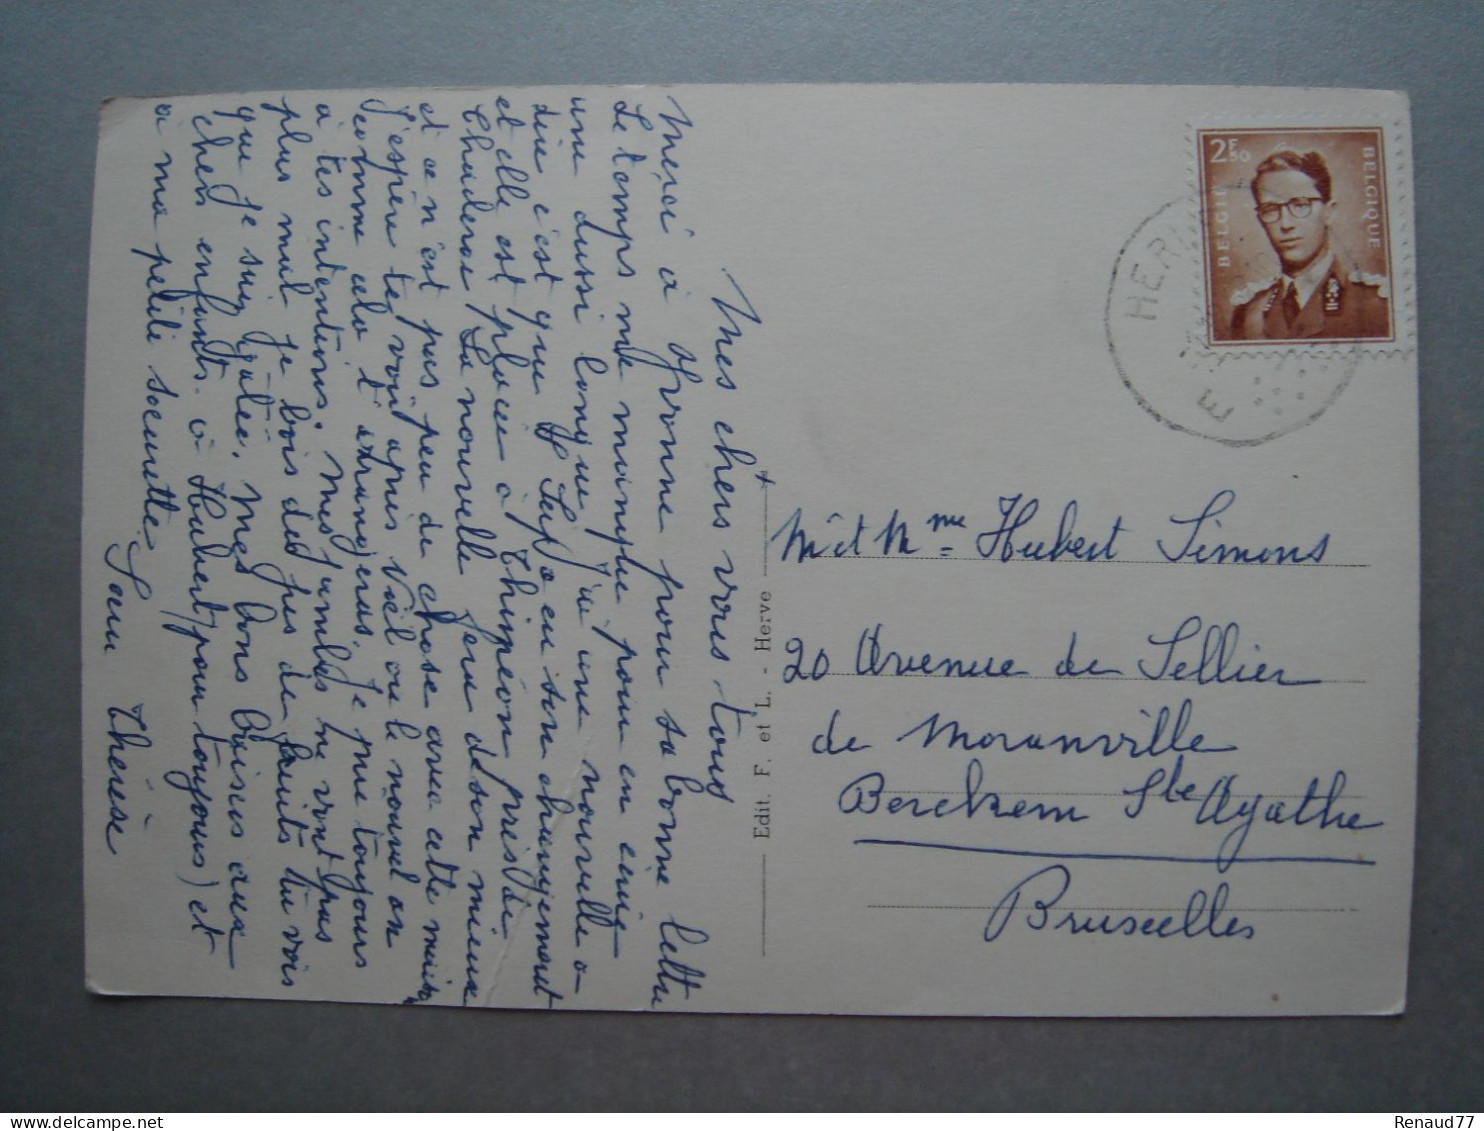 Mes chers vous tous
Merci à Yvonne pour sa bonne lettre
Le temps me manque pour en écrire
une aussi longue. J'ai une nouvelle à
dire c'est que Sup a eu son changement
et elle est placée à Thiméon près de
Charleroi. La nouvelle fera d son mieux
et ce n'est pas peu de chose avec cette
J'espère te voir après Noël ou le nouvel an
comme cela t'arrangeras. Je prie toujours
à tes intentions. Mes jambes ne vont pas
plus mal je bois des jus de fruits tu vois
que je suis gâtée. Mes bons baisers aux
chers enfants. à Hubert (pour toujours) et
à ma petite soeurette.
Soeur Thérèse
Edit. F. et L. - Herve
2F50
BELGIE
BELGIQUE
HER
E
M et Mme Hubert Simons
20 Avenue de Sellier
de Moranville
Berckem Ste Agathe
Bruxelles
Renaud77